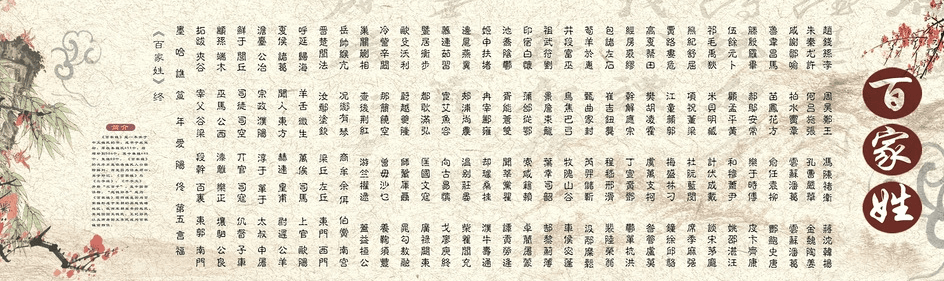 百家姓
趙錢孫李 周吳鄭王 馮陳褚衛 蔣沈韓楊
朱秦尤許 何呂施張 孔曹嚴華 金魏陶姜
戚謝鄒喻 柏水竇章 雲蘇潘葛 雲蘇潘葛
魯韋昌馬 苗鳳花方 俞任袁柳 酆鮑史唐
滕殷羅畢 郝鄔安常 樂于時傅 皮卞齊康
伍餘元卜 顧孟平黃 和穆蕭尹 姚邵湛汪
祁毛禹狄 米貝明臧 計伏成戴 談宋茅龐
熊紀舒屈 項祝董梁 杜阮藍閔 席季麻強
賈路婁危 江童顏郭 梅盛林刁 鍾徐邱駱
高夏蔡田 樊胡凌霍 虞萬支柯 昝管盧莫
經房裘繆 幹解應宗 丁宣賁鄧 鬱單杭洪
包諸左石 崔吉鈕龔 程嵇邢滑 裴陸榮翁
荀羊於惠 甄曲家封 芮羿儲靳 汲邴糜鬆
井段富巫 烏焦巴弓 牧隗山谷 車侯宓蓬
祖武符劉 景詹束龍 葉幸司韶 郜黎薊薄
印宿白懷 蒲邰從鄂 索咸籍賴 卓藺屠蒙
池喬陰鬱 胥能蒼雙 聞莘黨翟 譚貢勞逄
姬申扶堵 冉宰酈雍 卻璩桑桂 濮牛壽通
邊扈燕冀 郟浦尚農 溫別莊晏 柴瞿閻充
慕連茹習 宦艾魚容 向古易慎 戈廖庾終
暨居衡步 都耿滿弘 匡國文寇 廣祿闕東
歐殳沃利 蔚越夔隆 師鞏厙聶 晁勾敖融
冷訾辛闞 那簡饒空 曾毋沙乜 養鞠須豐
巢關蒯相 查後荊紅 游竺權逯 蓋益桓公
岳帥緱亢 況郈有琴 商牟佘佴 伯賞南宮
晉楚閆法 汝鄢塗欽 梁丘左丘 東門西門
呼延歸海 羊舌微生 萬俟司馬 上官歐陽
夏侯諸葛 聞人東方 赫連皇甫 尉遲公羊
澹臺公冶 宗政濮陽 淳于單于 太叔申屠
鮮于閭丘 司徒司空 亓官司寇 仉督子車
顓孫端木 巫馬公西 漆雕樂正 壤駟公良
拓跋夾谷 宰父谷梁 段幹百裏 東郭南門
墨哈譙笪 年愛陽佟 第五言福
《百家姓》終
簡介